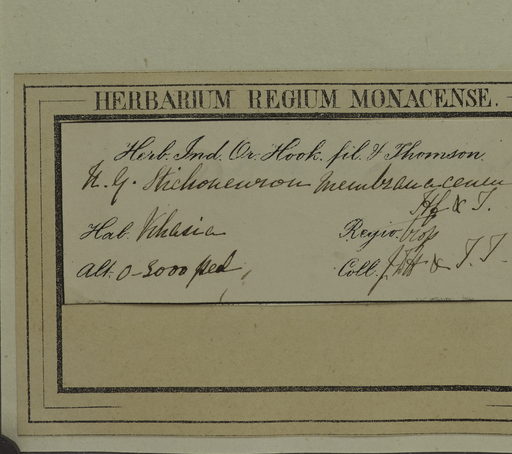 HERBARIUM REGIUM MONACENSE.
Herb. Ind. Or. Hook. fil. & Thomson.
N. G. Stichoneuron membranaceum
Hf & T.
Hab. Khasia Regio. trop
Alt. 0-3000 ped. Coll. J.D.H. & T.T.